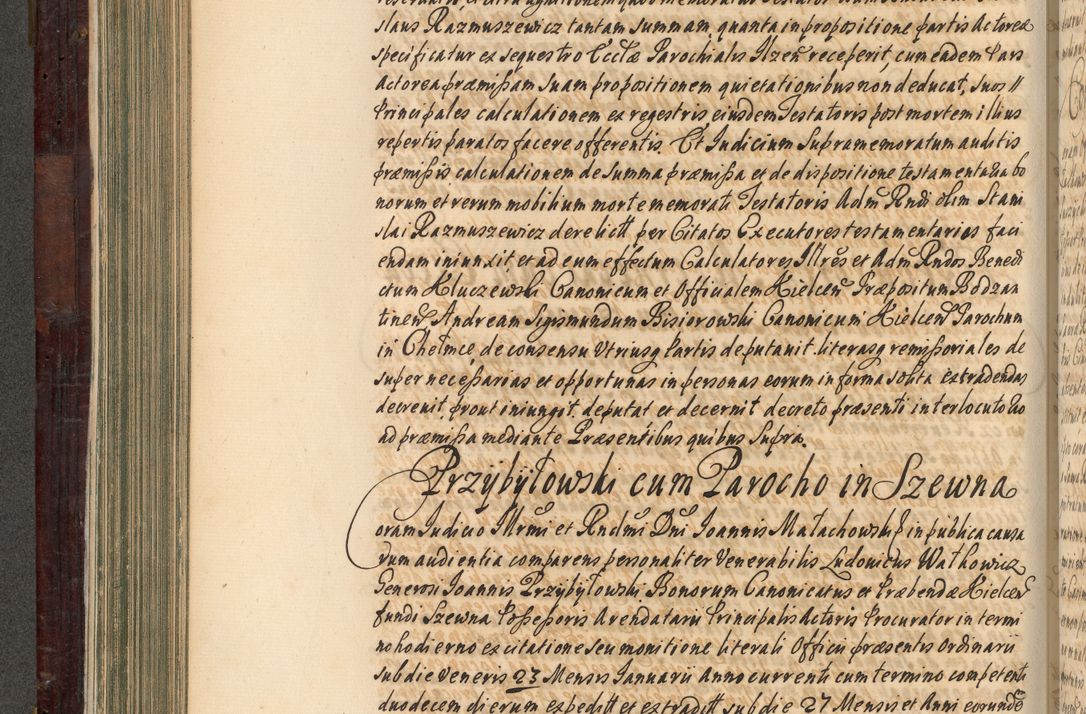 slaus Razmuszewicz tantam summam, quanta in propositione partis Actoreæ
specificatur ex sequestro Ecclæ Parochialis Ilzen̄ receperit, cum eadem Pars
Actorea præmissam suam propositionem quietationibus non deducat, suos //
Principales calculationem ex regestris eiusdem Testatoris post mortem illius
repertis paratos facere offerentis. Et Iudicium Supramemoratum auditis
præmissis, calculationem de summa præmissa et de dispositione testamentaria bo
norum et rerum mobilium morte memorati Testatoris Adm̄ Rndi olim Stani
slai Razmuszewicz derelictt per Citatos Executores testamentarios faci
endam iniunxit, et ad eum effectum Calculatores Illres et Adm̄ Rndos Benedi
ctum Kluczewski Canonicum et Officialem Kielcen̄ Præpositum Bodzan
tinen̄ Andream Sigismundum Bisiorowski Canonicum Kielcen̄ Parochum
in Chełmce, de consensu Utriusq Partis deputavit literasq remissoriales de
super necessarias et opportunas in personas eorum in forma solita extradendas
decrevit, prout iniungit, deputat et decernit decreto præsenti interlocutorio
ad præmissa mediante Præsentibus quibus Supra.
Przybyłowski cum Parocho in Szewna
oram Iudicio Illrmi et Rndmi Dni Ioannis Małachowski in publica causa
rum audientia comparens personaliter Venerabilis Ludovicus Watkowicz
Generosi Ioannis Przybyłowski Bonorum Canonicatus et Præbendæ Kielcen̄
fundi Szewna Possessoris Arendatarii Principalis Actoris Procurator in termi
no hodierno ex citatione seu monitione literali Officii præsentis Ordinarii
sub die Veneris 23 Mensis Ianuarii Anno currenti cum termino competenti
duodecem dierum expeditt et extraditt sub die 27 Mensis et Anni eorunde